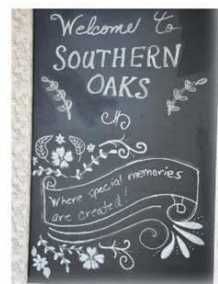 Welcome to
SOUTHERN
OAKS
Where special memories
are created!